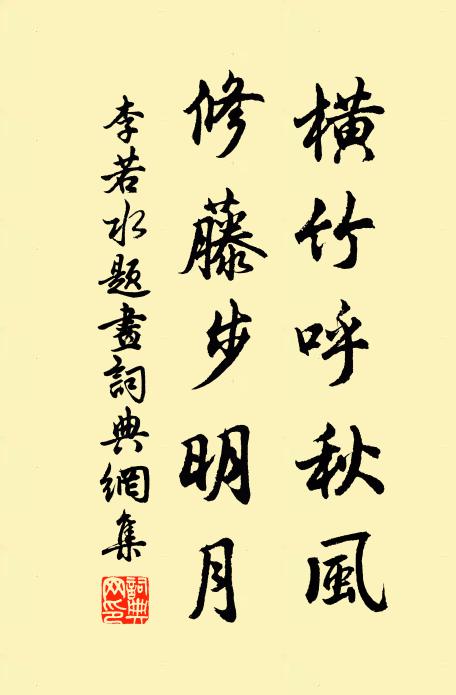 橫竹呼秋風
修藤步明月
李若水題畫詞典網集
詞典網印